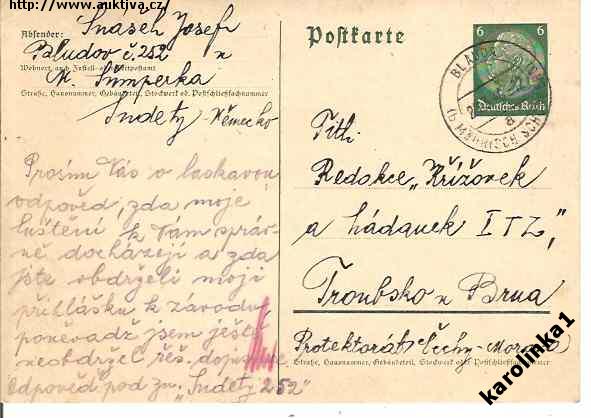 www.auktiva.cz
Absender: Snašel Josef
Bludov č. 252 n
Wohnort, auch Zustell- oder Leitpostamt
M. Šumperka
Straße, Hausnummer, Gebäudeteil, Stockwerk od. Postschließfachnummer
Sudety - Německo
Prosím Vás o laskavou
odpověd, zda moje
luštění k Vám správ-
ně docházejí a zda
jste obdrželi moji
přihlášku k závodu,
poněvadž jsem ještě
neobdržel řeš.
odpověď pod zn. "Sudety 252"
Postkarte
6 6
Deutsches Reich
Titl.
Redakce "Křížovek
a hádanek ITZ",
Troubsko u Brna
Protektorát Čechy-Morava
Straße, Hausnummer, Gebäudeteil, Stockwerk oder Postschließfachnummer
karolinka1